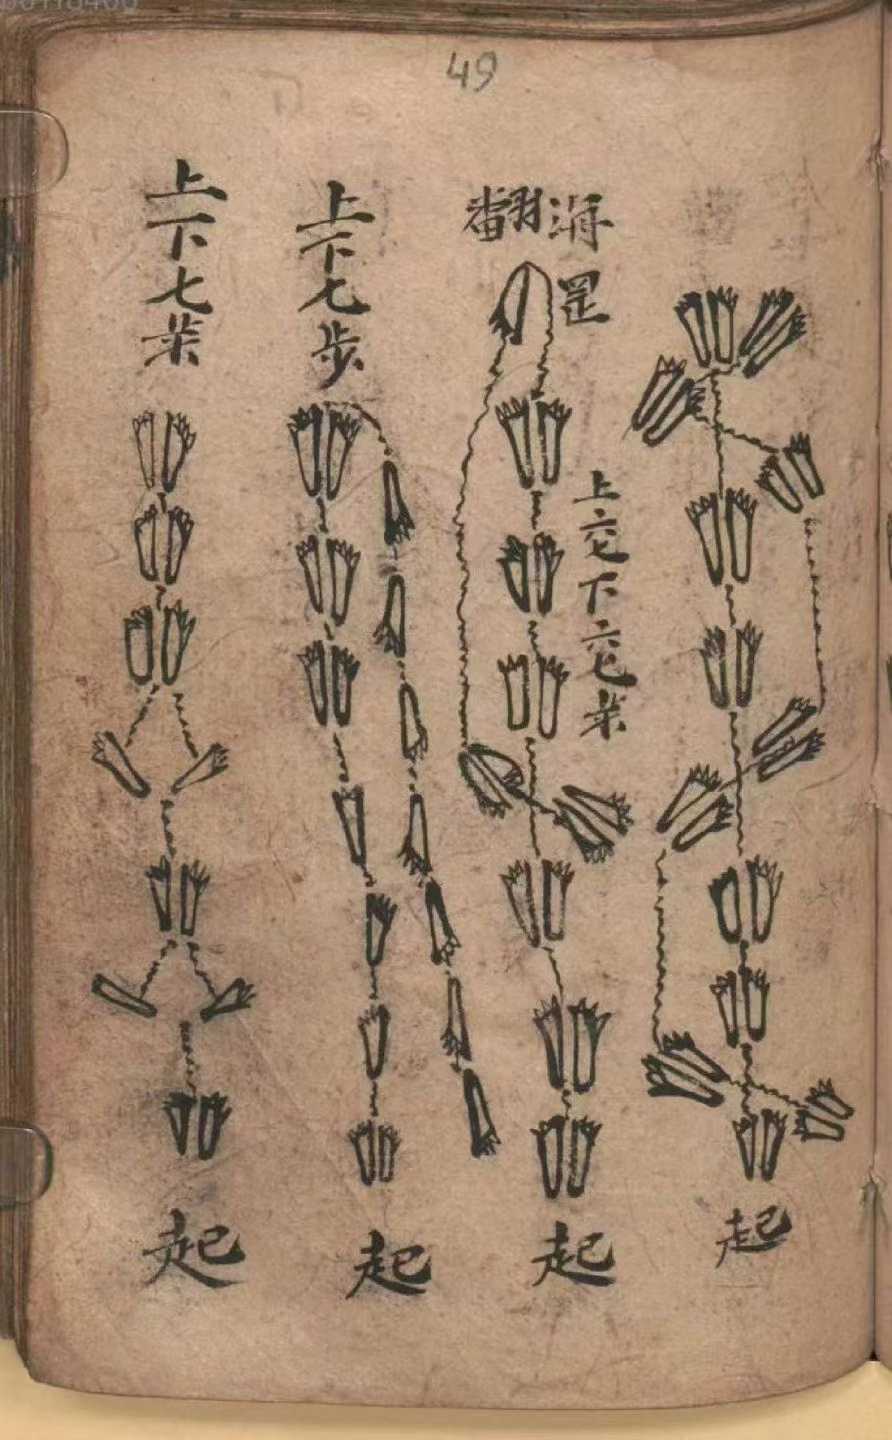 49
起
翻海罡
上六七下六七步
起
上下七步
起
上下七步
起